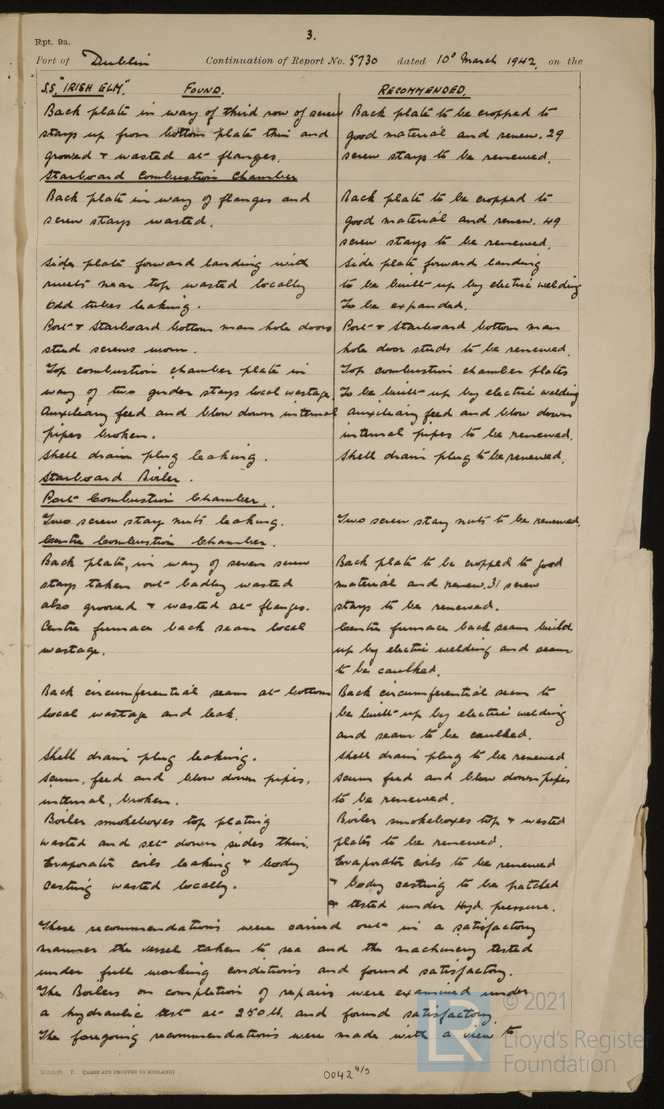 3.
Rpt. 9a.
Port of Dublin Continuation of Report No. 5730 dated 10th March 1942, on the
S.S. "IRISH ELM". FOUND. RECOMMENDED.
Back plate in way of third row of screw Back plate to be cropped to
stays up from bottom plate thin and good material and renew. 29
grooved & wasted at flanges. screw stays to be renewed.
Starboard Combustion Chamber
Back plate in way of flanges and Back plate to be cropped to
screw stays wasted. good material and renew. 49
screw stays to be renewed.
Side plate forward landing with Side plate forward landing
rivets near top wasted locally to be built up by electric welding
Odd tubes leaking. To be expanded.
Port & Starboard bottom man hole doors Port & Starboard bottom man
stud screws worn. hole door studs to be renewed.
Top combustion chamber plate in Top combustion chamber plates
way of two girder stays local wastage. To be built up by electric welding
Auxiliary feed and blow down internal Auxiliary feed and blow down
pipes broken. internal pipes to be renewed.
Shell drain plug leaking. Shell drain plug to be renewed.
Starboard Boiler.
Port Combustion Chamber.
Two screw stay nuts leaking. Two screw stay nuts to be renewed.
Centre Combustion Chamber.
Back plate, in way of seven screw Back plate to be cropped to good
stays taken out badly wasted material and renew. 31 screw
also grooved & wasted at flanges. stays to be renewed.
Centre furnace back seam local Centre furnace back seam build
wastage. up by electric welding and seam
to be caulked.
Back circumferential seam at bottom Back circumferential seam to
local wastage and leak. be built up by electric welding
and seam to be caulked.
Shell drain plug leaking. Shell drain plug to be renewed
Scum, feed and blow down pipes, Scum feed and blow down pipes
internal, broken. to be renewed.
Boiler smokeboxes top plating Boiler smokeboxes top & wasted
wasted and set down sides thin. plates to be renewed.
Evaporator coils leaking & body Evaporator coils to be renewed
casting wasted locally. & body casting to be patched
& tested under Hyd. pressure.
These recommendations were carried out in a satisfactory
manner the vessel taken to sea and the machinery tested
under full working conditions and found satisfactory.
The Boilers on completion of repairs were examined under
a hydraulic test at 250 lb. and found satisfactory.
The foregoing recommendations were made with a view to
(MADE AND PRINTED IN ENGLAND)
0042 4/5
LR © 2021
Lloyd's Register
Foundation